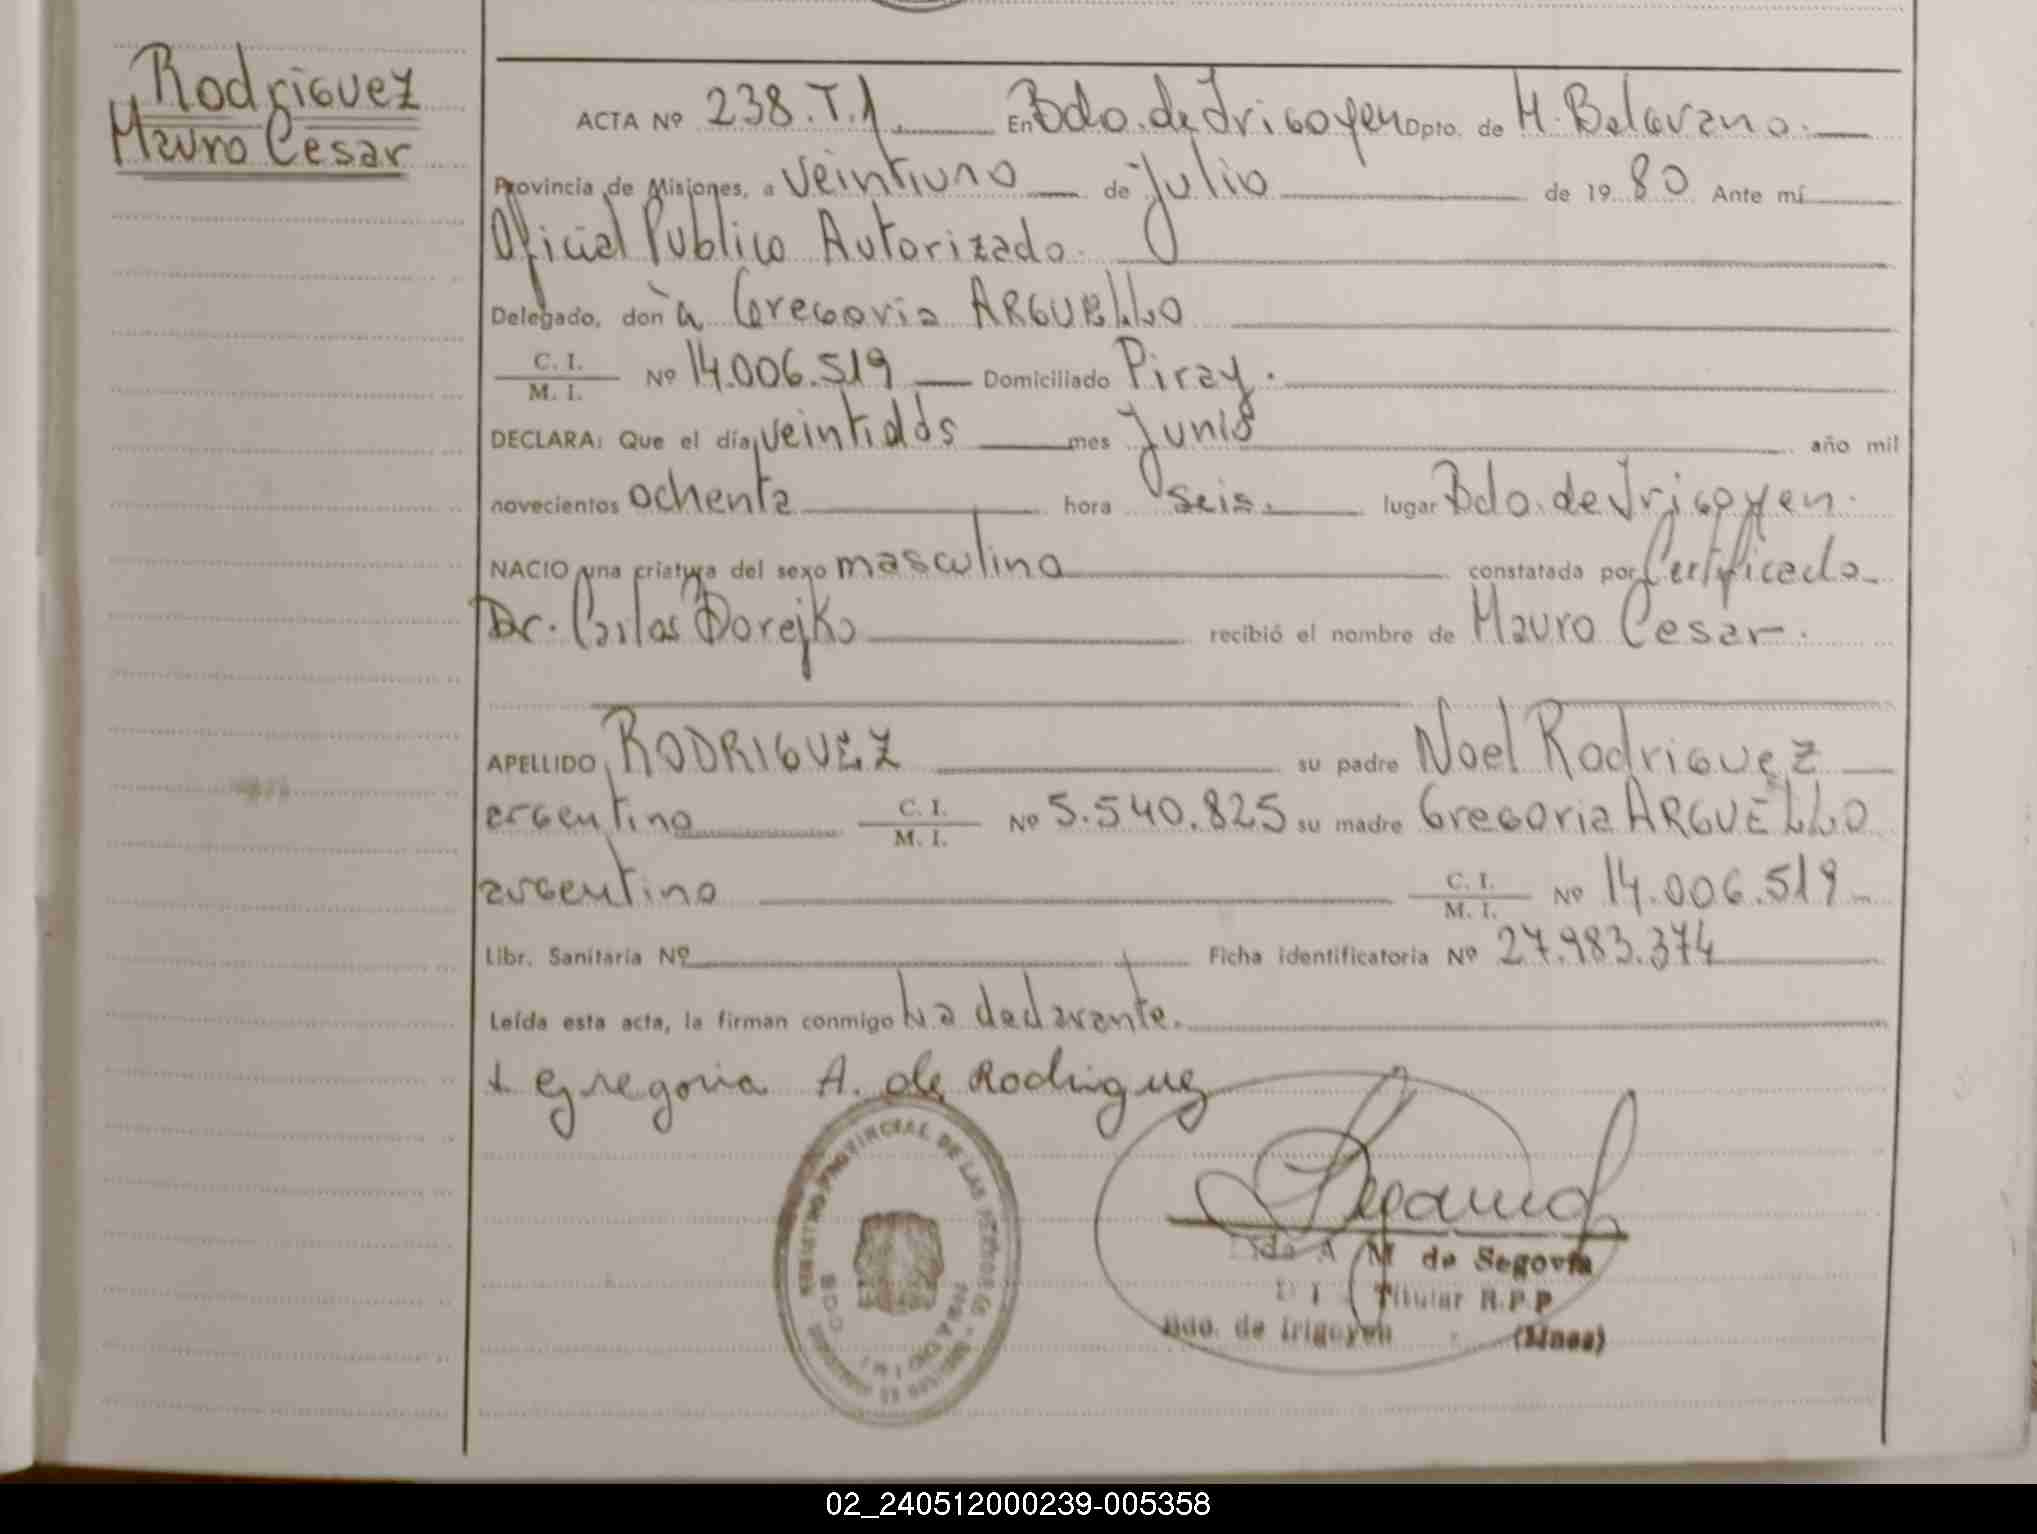 Rodriguez
Mauro Cesar
ACTA Nº 238.T.1 En Bdo. de Irigoyen Dpto. de M. Belgrano.
Provincia de Misiones, a veintiuno de Julio de 19 80 Ante mí
Oficial Publico Autorizado.
Delegado, don a Gregoria ARGUELLO
C. I.
M. I. Nº 14.006.519 Domiciliado Piray.
DECLARA: Que el día veintidós mes Junio año mil
novecientos ochenta hora seis. lugar Bdo. de Irigoyen.
NACIO una criatura del sexo masculino constatada por Certificado
Dr. Carlos Dorejko recibió el nombre de Mauro Cesar.
APELLIDO RODRIGUEZ su padre Noel Rodriguez
argentino C. I.
M. I. Nº 5.540.825 su madre Gregoria ARGUELLO
argentino C. I.
M. I. Nº 14.006.519
Libr. Sanitaria Nº Ficha identificatoria Nº 27.983.374
Leída esta acta, la firman conmigo La declarante.
Gregoria A. de Rodriguez
REGISTRO PROVINCIAL DE LAS PERSONAS
M de Segovia
Titular R.P.P
Bdo. de Irigoyen (Mnes)
02_240512000239-005358